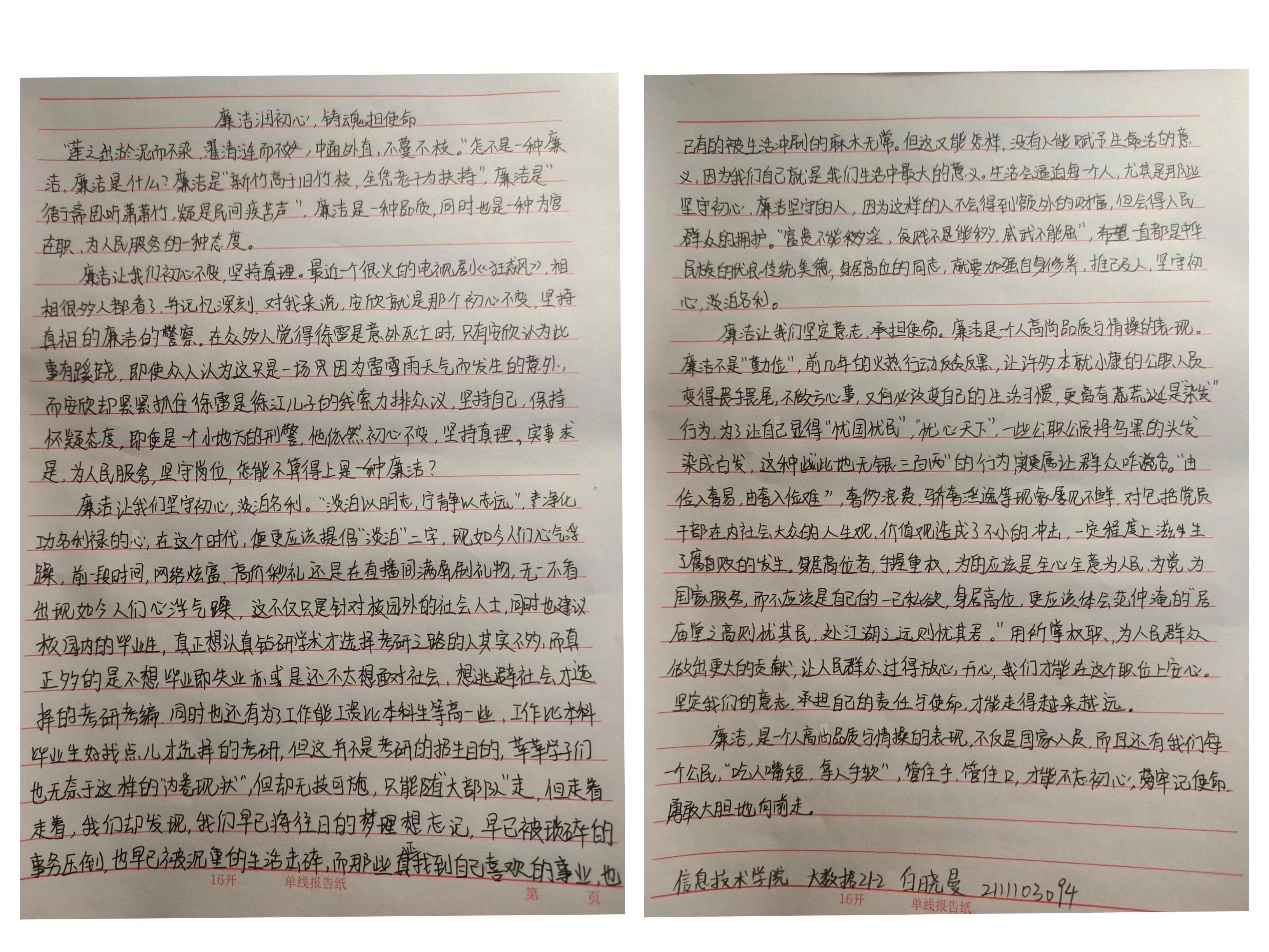 廉洁润初心,铸魂担使命
“莲之出淤泥而不染,濯清涟而不妖,中通外直,不蔓不枝。”怎不是一种廉
洁,廉洁是什么?廉洁是“新竹高于旧竹枝,全凭老干为扶持”,廉洁是“
衙斋卧听萧萧竹,疑是民间疾苦声”,廉洁是一种品质,同时也是一种为官
在职、为人民服务的一种态度。
廉洁让我们初心不变,坚持真理。最近一个很火的电视剧《狂飙》,相
相很多人都看了,并记忆深刻,对我来说,安欣就是那个初心不变,坚持
真相的廉洁的警察。在众多人觉得徐雷是意外死亡时,只有安欣认为此
事有蹊跷,即使众人认为这只是一场只因为雷雪雨天气而发生的意外,
而安欣却紧紧抓住徐雷是徐江儿子的线索力排众议,坚持自己,保持
怀疑态度,即使是一个小地方的刑警,他依然初心不变,坚持真理,实事求
是,为人民服务,坚守岗位,怎能不算得上是一种廉洁?
廉洁让我们坚守初心,淡泊名利。“淡泊以明志,宁静以志远,”净化
功名利禄的心,在这个时代,便更应该提倡“淡泊”二字,现如今人们心气浮
躁,前一段时间,网络炫富、高价彩礼还是在直播间满屏刷礼物,无一不看
出现如今人们心浮气躁,这不仅只是针对校园外的社会人士,同时也建议
校园内的毕业生,真正想认真钻研学术才选择考研之路的人其实不多,而真
正多的是不想毕业即失业亦或是还不太想面对社会,想逃避社会才选
择的考研考编,同时也还有为了工作能工资比本科生等高一些,工作比本科
毕业生好找点儿才选择的考研,但这并不是考研的招生目的,莘莘学子们
也无奈于这样的“内卷现状”,但却无技可施,只能随“大部队”走,但走着
走着,我们却发现,我们早已将往日的梦想忘记,早已被琐碎的
事务压倒,也早已被沉重的生活击碎,而那些真找到自己喜欢的事业,也
16开 单线报告纸
第 页
已有的被生活冲刷的麻木无常。但这又能怎样,没有人能赋予生活的意
义,因为我们自己就是我们生活中最大的意义。生活会逼迫每个人,尤其是那些
坚守初心、廉洁坚守的人,因为这样的人不会得到额外的财富,但会得人民
群众的拥护。“富贵不能淫,贫贱不能移,威武不能屈”,一直都是中华
民族的优良传统美德,身居高位的同志,就要加强自身修养,推己及人,坚守初
心,淡泊名利。
廉洁让我们坚定意志,承担使命。廉洁是一个人高尚品质与情操的表现。
廉洁不是“勤位”,前几年的火热行动反贪反黑,让许多本就小康的公职人员
变得畏手畏尾,不敢亏心事,又何必改变自己的生活习惯,更离有荒谬还是“染发”
行为,为了让自己显得“忧国忧民”,“忧心天下”,一些公职公民将乌黑的头发
染成白发,这种“此地无银三百两”的行为实属让群众咋舌。“由
俭入奢易,由奢入俭难”,奢侈浪费,骄奢淫逸等现象屡见不鲜,对包括党员
干部在内社会大众的人生观,价值观造成了不小的冲击,一定程度上滋生
了腐败的发生。身居高位者,手握重权,为的应该是全心全意为人民,为党,为
国家服务,而不应该是自己的一己私欲,身居高位,更应该体会范仲淹的“居
庙堂之高则忧其民,处江湖之远则忧其君。”用所掌权职、为人民群众
做出更大的贡献,让人民群众过得放心,开心,我们才能在这个职位上安心。
坚定我们的意志,承担自己的责任与使命,才能走得越来越远。
廉洁,是一个人高尚品质与情操的表现,不仅是国家人员,而且还有我们每
一个公民,“吃人嘴短,拿人手软”,管住手,管住口,才能不忘初心,牢记使命,
勇敢大胆地向前走。
信息技术学院 大数据212 白晓曼 2111103094
16开 单线报告纸